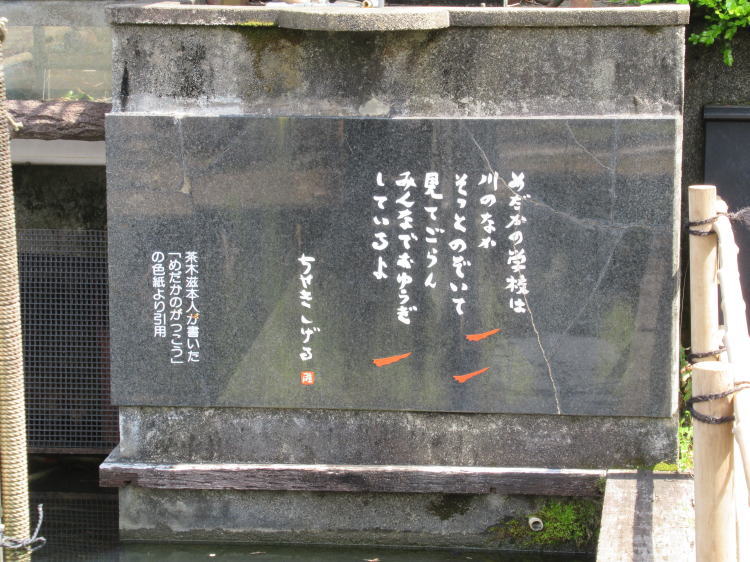 めだかの学校は
川のなか
そっとのぞいて
見てごらん
みんなでおゆうぎ
しているよ
ちゃきしげる
茶木滋本人が書いた
「めだかのがっこう」
の色紙より引用